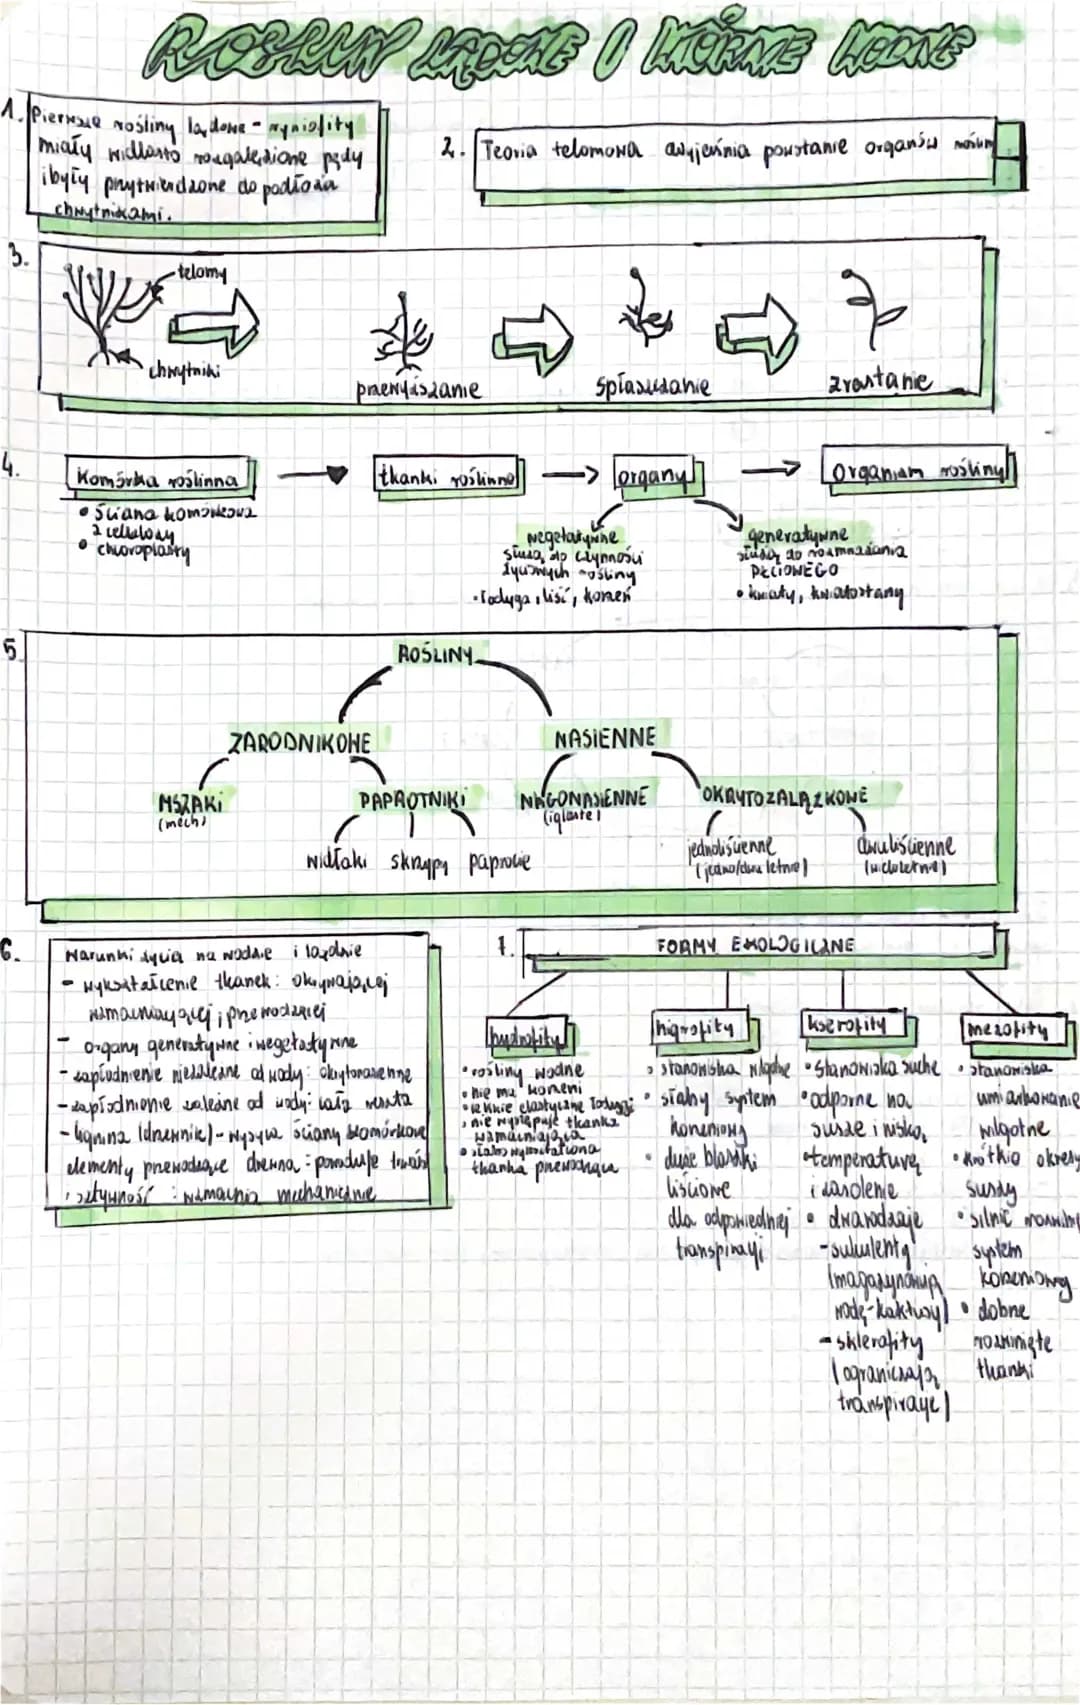 ROŚLINY LĄDOWE I WTÓRNIE WODNE
1. Pierwsze rośliny lądowe - ryniofity
miały widlasto rozgałęzione pędy
i były przytwierdzone do podłoża
chwytnikami.
2. Teoria telomowa wyjaśnia powstanie organów roślin
3.
telomy
chwytniki
przewyższanie
spłaszczanie
zrastanie
4.
Komórka roślinna
tkanki roślinne
organy
organizm rośliny
• ściana komórkowa
z celulozy
• chloroplasty
wegetatywne
służą do czynności
życiowych rośliny
• łodyga, liść, korzeń
generatywne
służą do rozmnażania
PŁCIOWEGO
• kwiaty, kwiatostany
5.
ROŚLINY
ZARODNIKOWE
NASIENNE
MSZAKI
(mech)
PAPROTNIKI
NAGONASIENNE
(iglaste)
OKRYTOZALĄŻKOWE
widłaki skrzypy paprocie
jednoliścienne
(jedno/dwu letnie)
dwuliścienne
(wieloletnie)
6.
Warunki życia na wodzie i lądzie
- wykształcenie tkanek: okrywającej
wzmacniającej i przewodzącej
- organy generatywne i wegetatywne
- zapłodnienie niezależne od wody: okytonasienne
- zapłodnienie zależne od wody: cała reszta
- lignina (drzewnik) - wysyca ściany komórkowe
elementy przewodzące drewna : powoduje
sztywność : wzmacnia mechanicznie
7.
FORMY EKOLOGICZNE
hydrofity
• rośliny wodne
• nie ma korzeni
• cienkie elastyczne łodygi
• nie występuje tkanka
wzmacniająca
• słabo wykształcona
tkanka przewodząca
higrofity
• stanowiska wilgotne
• słaby system
korzeniowy
• duże blaszki
liściowe
dla odpowiedniej
transpiracji
kserofity
• stanowiska suche
• odporne na
susze i niską
• temperaturę
i zasolenie
• dwa rodzaje
- sukulenty
(magazynują
wodę - kaktusy)
- sklerofity
(ograniczają
transpirację)
mezofity
• stanowiska
umiarkowanie
wilgotne
• krótkie okresy
suszy
• silnie rozwinięty
system
korzeniowy
• dobrze
rozwinięte
tkanki